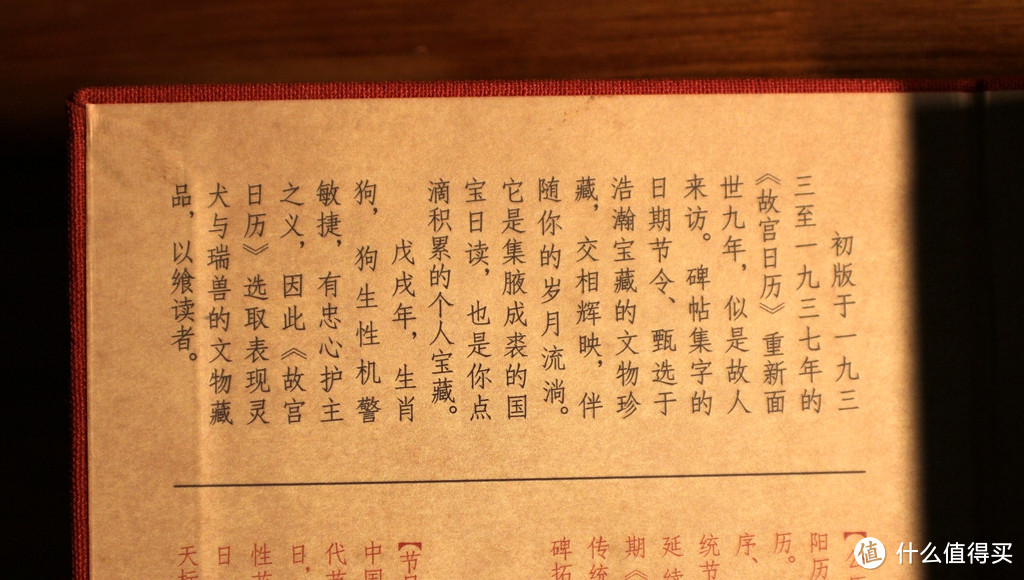 初版于一九三
三至一九三七年的
《故宫日历》重新面
世九年，似是故人
来访。碑帖集字的
日期节令、甄选于
浩瀚宝藏的文物珍
藏，交相辉映，伴
随你的岁月流淌。
它是集腋成裘的国
宝日读，也是你点
滴积累的个人宝藏。
戊戌年，生肖
狗，狗生性机警
敏捷，有忠心护主
之义，因此《故宫
日历》选取表现灵
犬与瑞兽的文物藏
品，以飨读者。
阳历
历。
序、
统节
延续
期《
传统
碑拓
【节
中国
代节
日，
性节
日
天
值 什么值得买